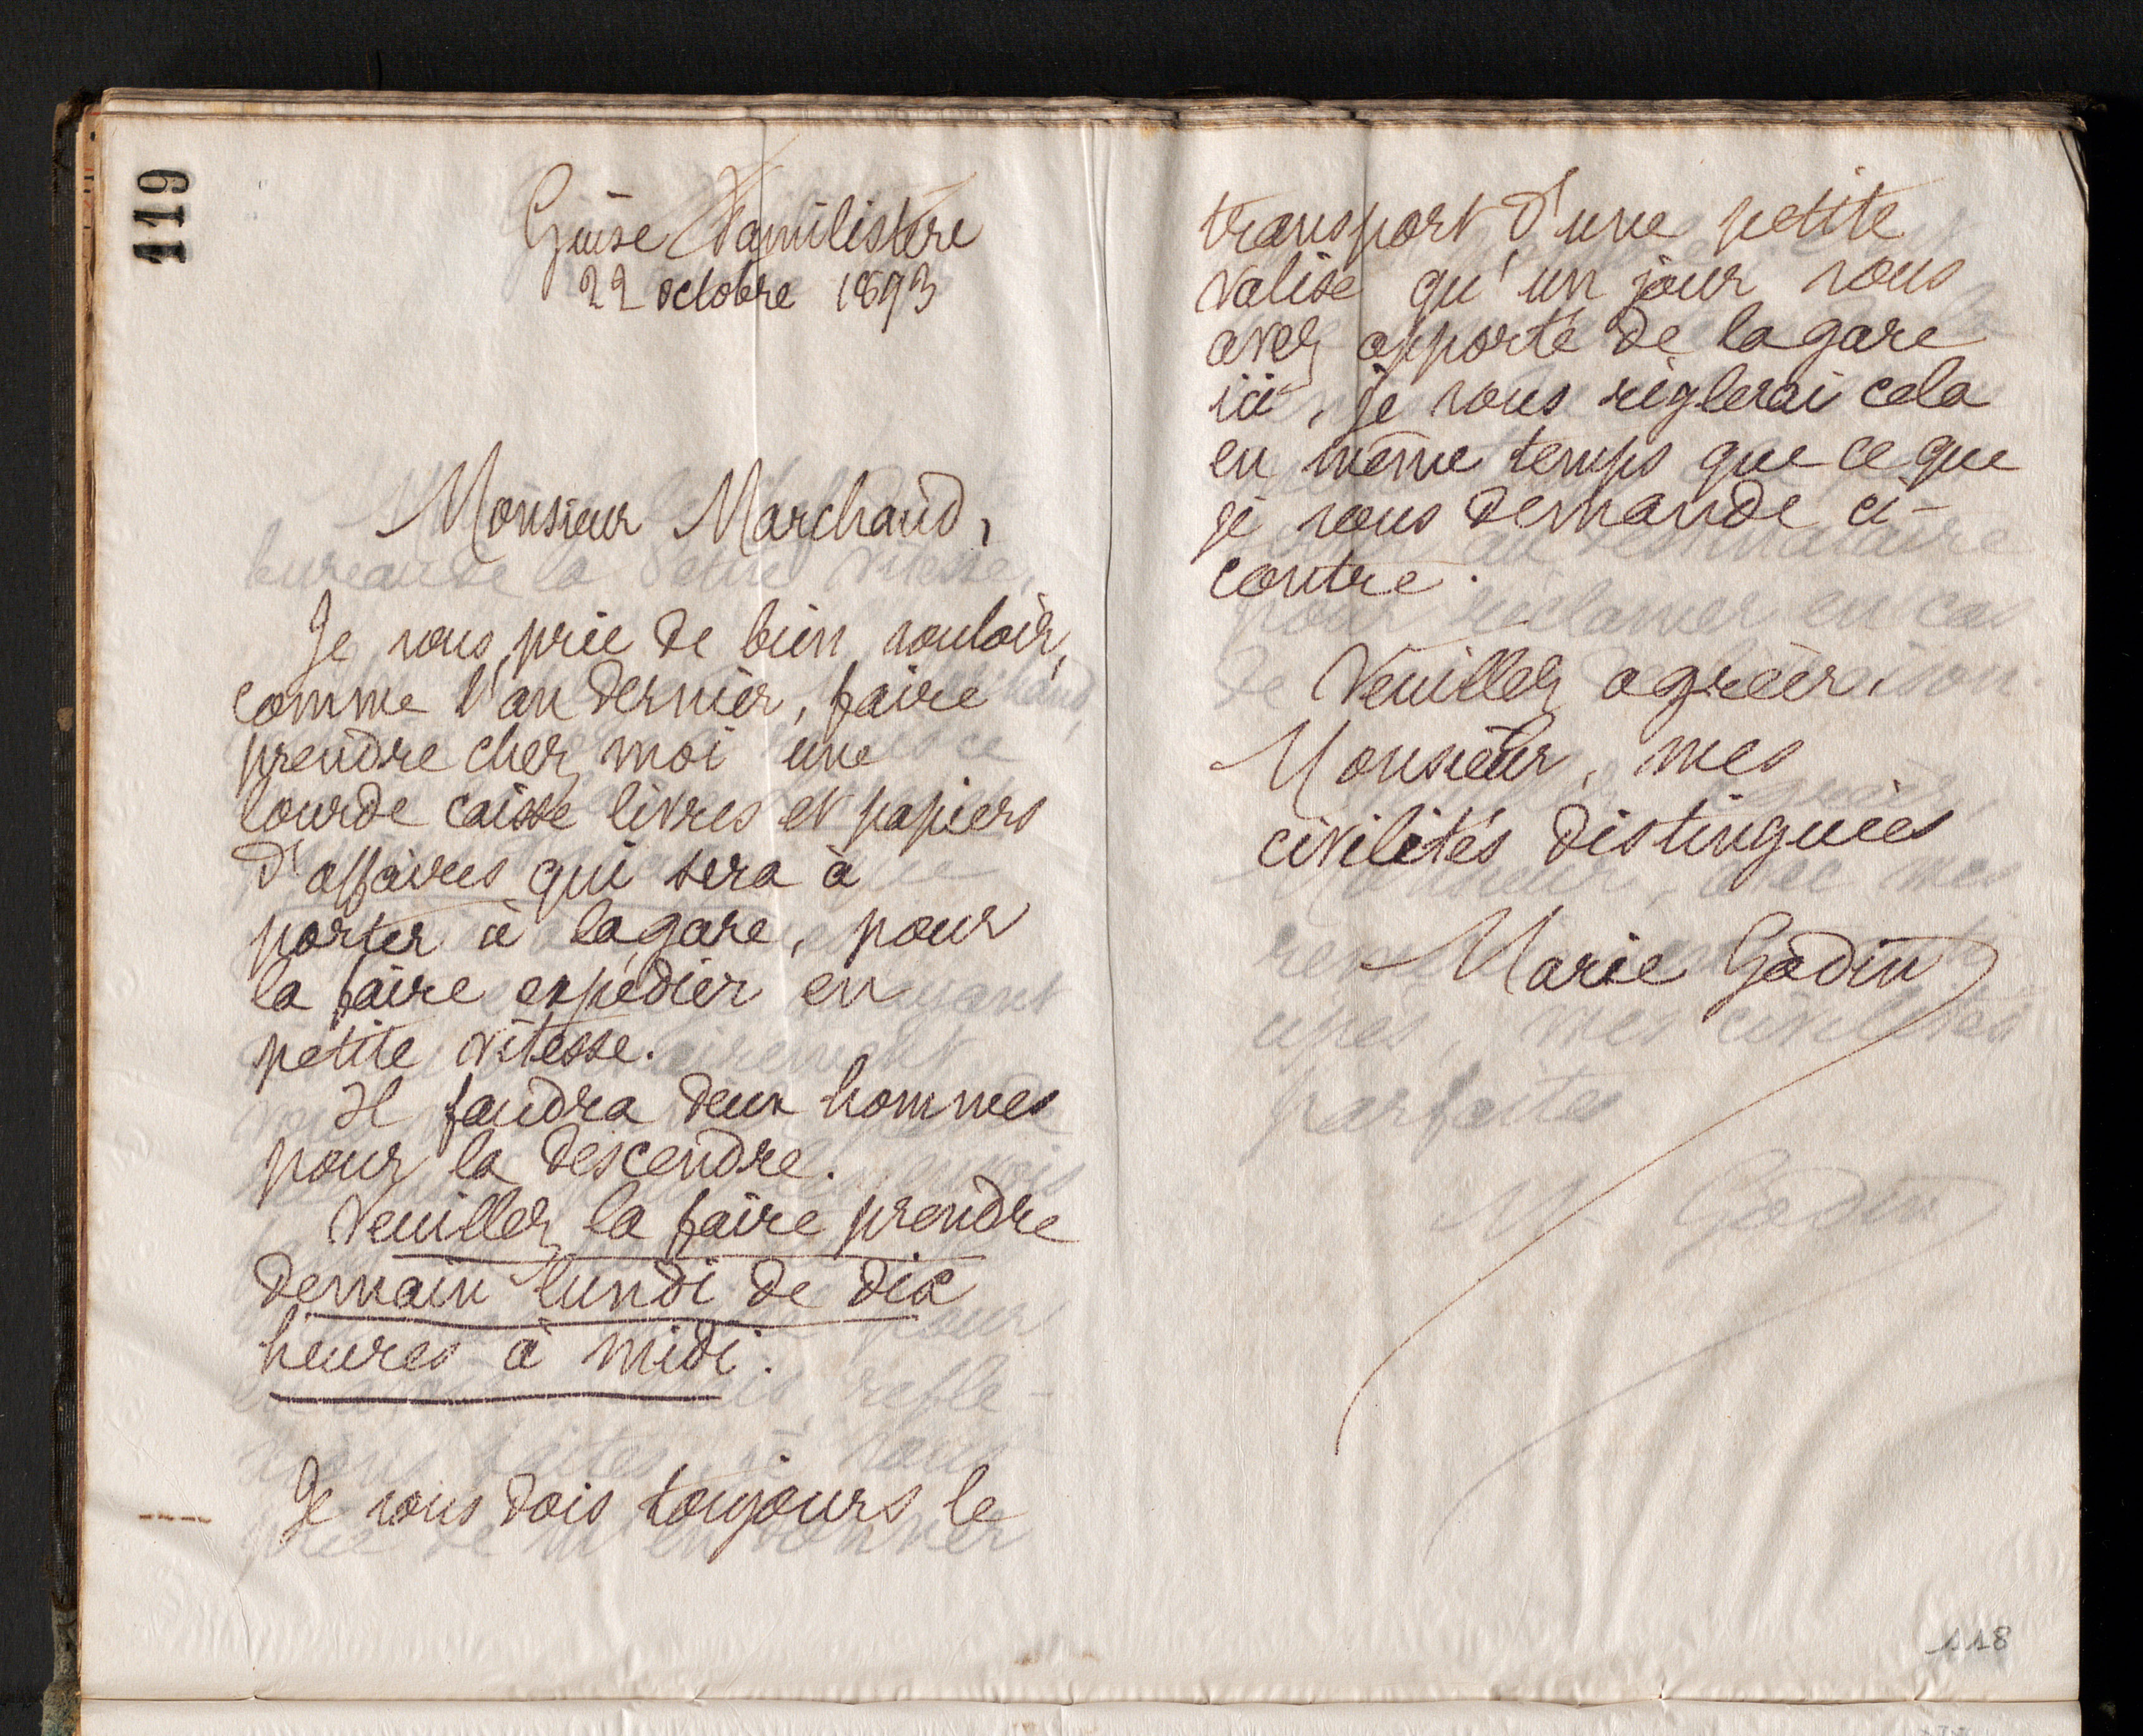 119
Guise Familistère
22 octobre 1893
Monsieur Marchand,
Je vous prie de bien vouloir,
comme l'an dernier, faire
prendre chez moi une
lourde caisse livres et papiers
d'affaires qui sera à
porter à la gare, pour
la faire expédier en
petite vitesse.
Il faudra deux hommes
pour la descendre.
Veuillez la faire prendre
demain lundi de dix
heures à midi.
Je vous dois toujours le
transport d'une petite
valise qu'un jour vous
avez apporté de la gare
ici, je vous règlerai cela
en même temps que ce que
je vous demande ci-
contre.
Veuillez agréer,
Monsieur, mes
civilités distinguées
Marie Godin
118